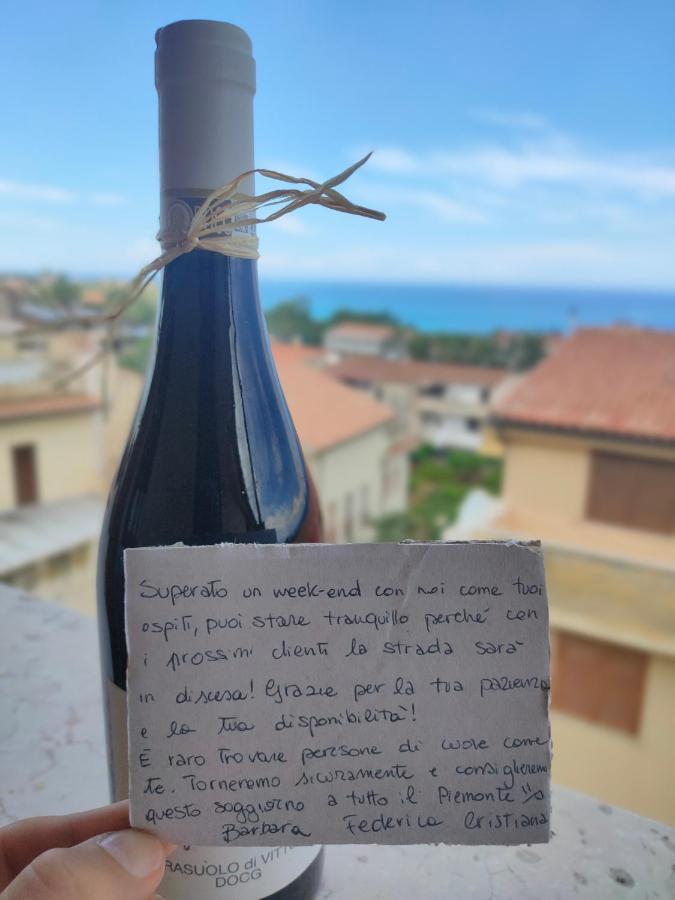 Superato un week-end con noi come tuoi
ospiti, puoi stare tranquillo perché con
i prossimi clienti la strada sarà
in discesa! Grazie per la tua pazienza
e la tua disponibilità!
È raro trovare persone di cuore come
te. Torneremo sicuramente e consiglieremo
questo soggiorno a tutto il Piemonte
Barbara Federica Cristiana
RASUOLO di VITTO
DOCG